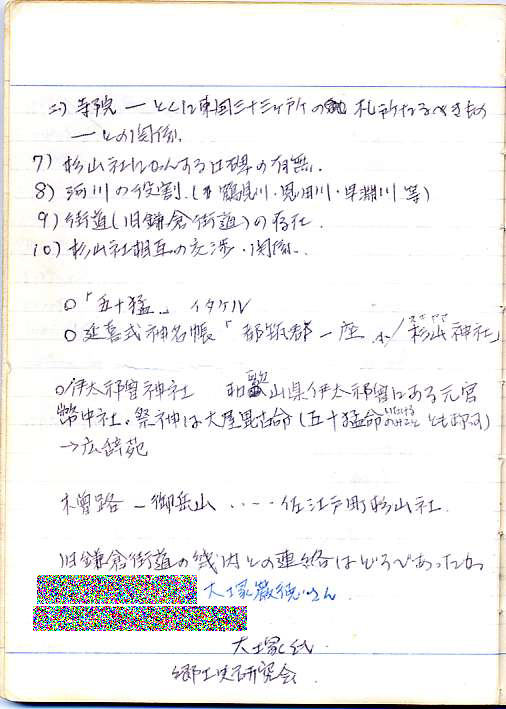 ニ) 寺院 ― とくに東国三十三ヶ所の 札所たるべきもの
― との関係.
7) 杉山社に 碑の有無.
8) 河川の役割.( 鶴見川・恩田川・早淵川 等)
9) 街道(旧鎌倉街道)の存在.
10) 杉山社相互の交渉・関係.
○「五十猛」 イタケル
○延喜式神名帳「都筑郡一座 小/杉山神社」
スギヤマ
○伊太祁曽神社 和歌山県伊太祁曽にある元官
幣中社.祭神は大屋毘古命(五十猛命 とも即す)
→広辞苑
木曽路 ― 御岳山 ‥‥ 佐江戸町杉山社.
旧鎌倉街道の 内との連絡はどうであったか
大塚 さん
大塚氏.
郷土史研究会.